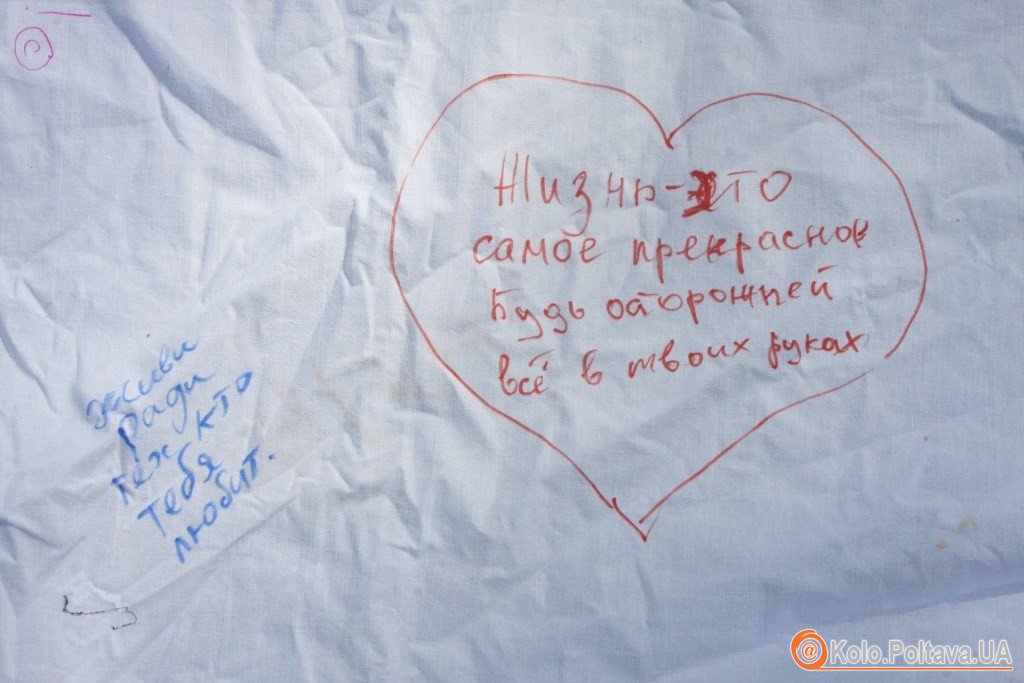 Жизнь - это
самое прекрасное
Будь осторожней
всё в твоих руках
живи
ради
тех кто
тебя
любит.
@Kolo.Poltava.UA